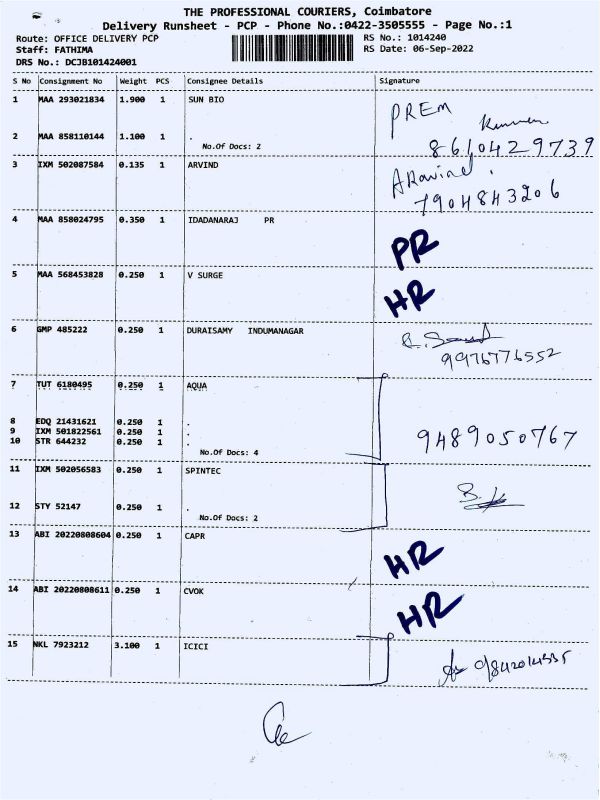 THE PROFESSIONAL COURIERS, Coimbatore
Delivery Runsheet - PCP - Phone No.:0422-3505555 - Page No.:1
Route: OFFICE DELIVERY PCP RS No.: 1014240
Staff: FATHIMA RS Date: 06-Sep-2022
DRS No.: DCJB101424001
S No Consignment No Weight PCS Consignee Details Signature
1 MAA 293021834 1.900 1 SUN BIO PREM
2 MAA 858110144 1.100 1 .
No.Of Docs: 2 8610429739
3 IXM 502087584 0.135 1 ARVIND ARavind.
7904843206
4 MAA 858024795 0.350 1 IDADANARAJ PR
PR
5 MAA 568453828 0.250 1 V SURGE
HR
6 GMP 485222 0.250 1 DURAISAMY INDUMANAGAR
9976776552
7 TUT 6180495 0.250 1 AQUA
8 EDQ 21431621 0.250 1 .
9 IXM 501822561 0.250 1 .
10 STR 644232 0.250 1 .
9489050767
No.Of Docs: 4
11 IXM 502056583 0.250 1 SPINTEC
12 STY 52147 0.250 1 .
No.Of Docs: 2
13 ABI 20220808604 0.250 1 CAPR
HR
14 ABI 20220808611 0.250 1 CVOK
HR
15 NKL 7923212 3.100 1 ICICI